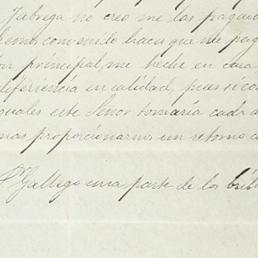 Fabrega no creo me las pagara
hemos convenido haca que me pag
principal, me heche en cara
diferiencia en calidad, pues si con
uales este Señor tomaria cada a
mos proporcionarnos un retorno c
Gallego una parte de los